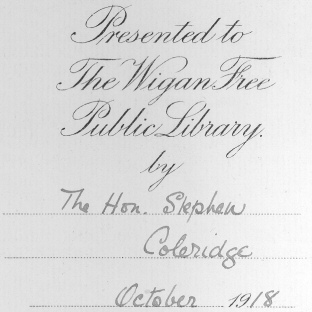 Presented to
The Wigan Free
Public Library.
by
The Hon. Stephen
Coleridge
October 1918